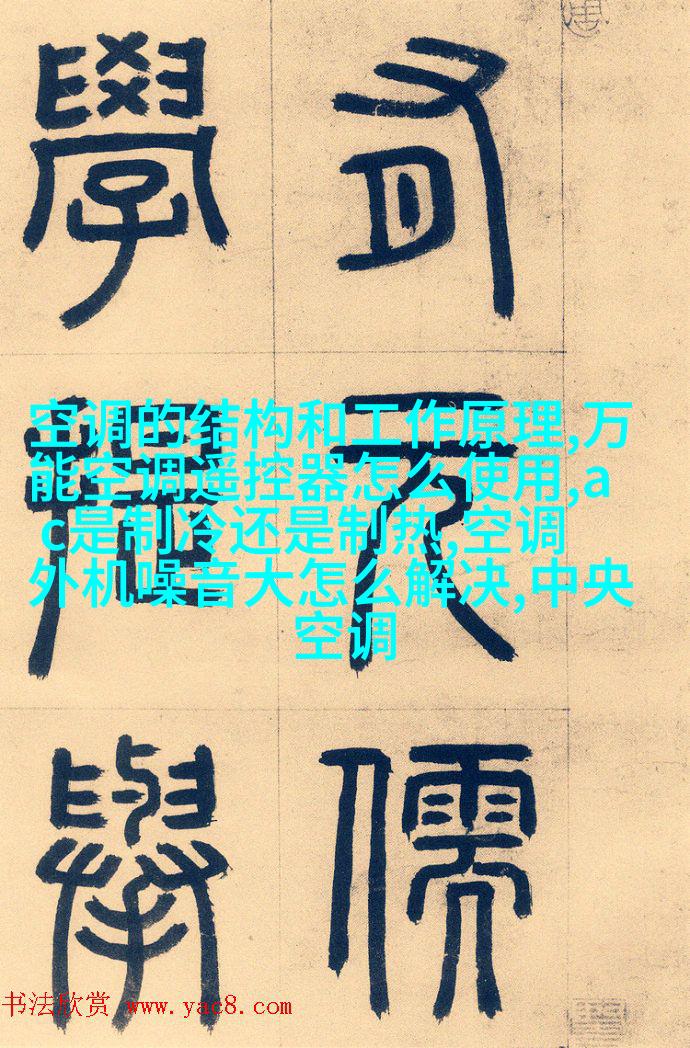 有元儒
學提舉
空调的结构和工作原理,万
能空调遥控器怎么使用,a
c是制冷还是制热,空调
外机噪音大怎么解决,中央
空调
书法欣赏 www.yac8.com